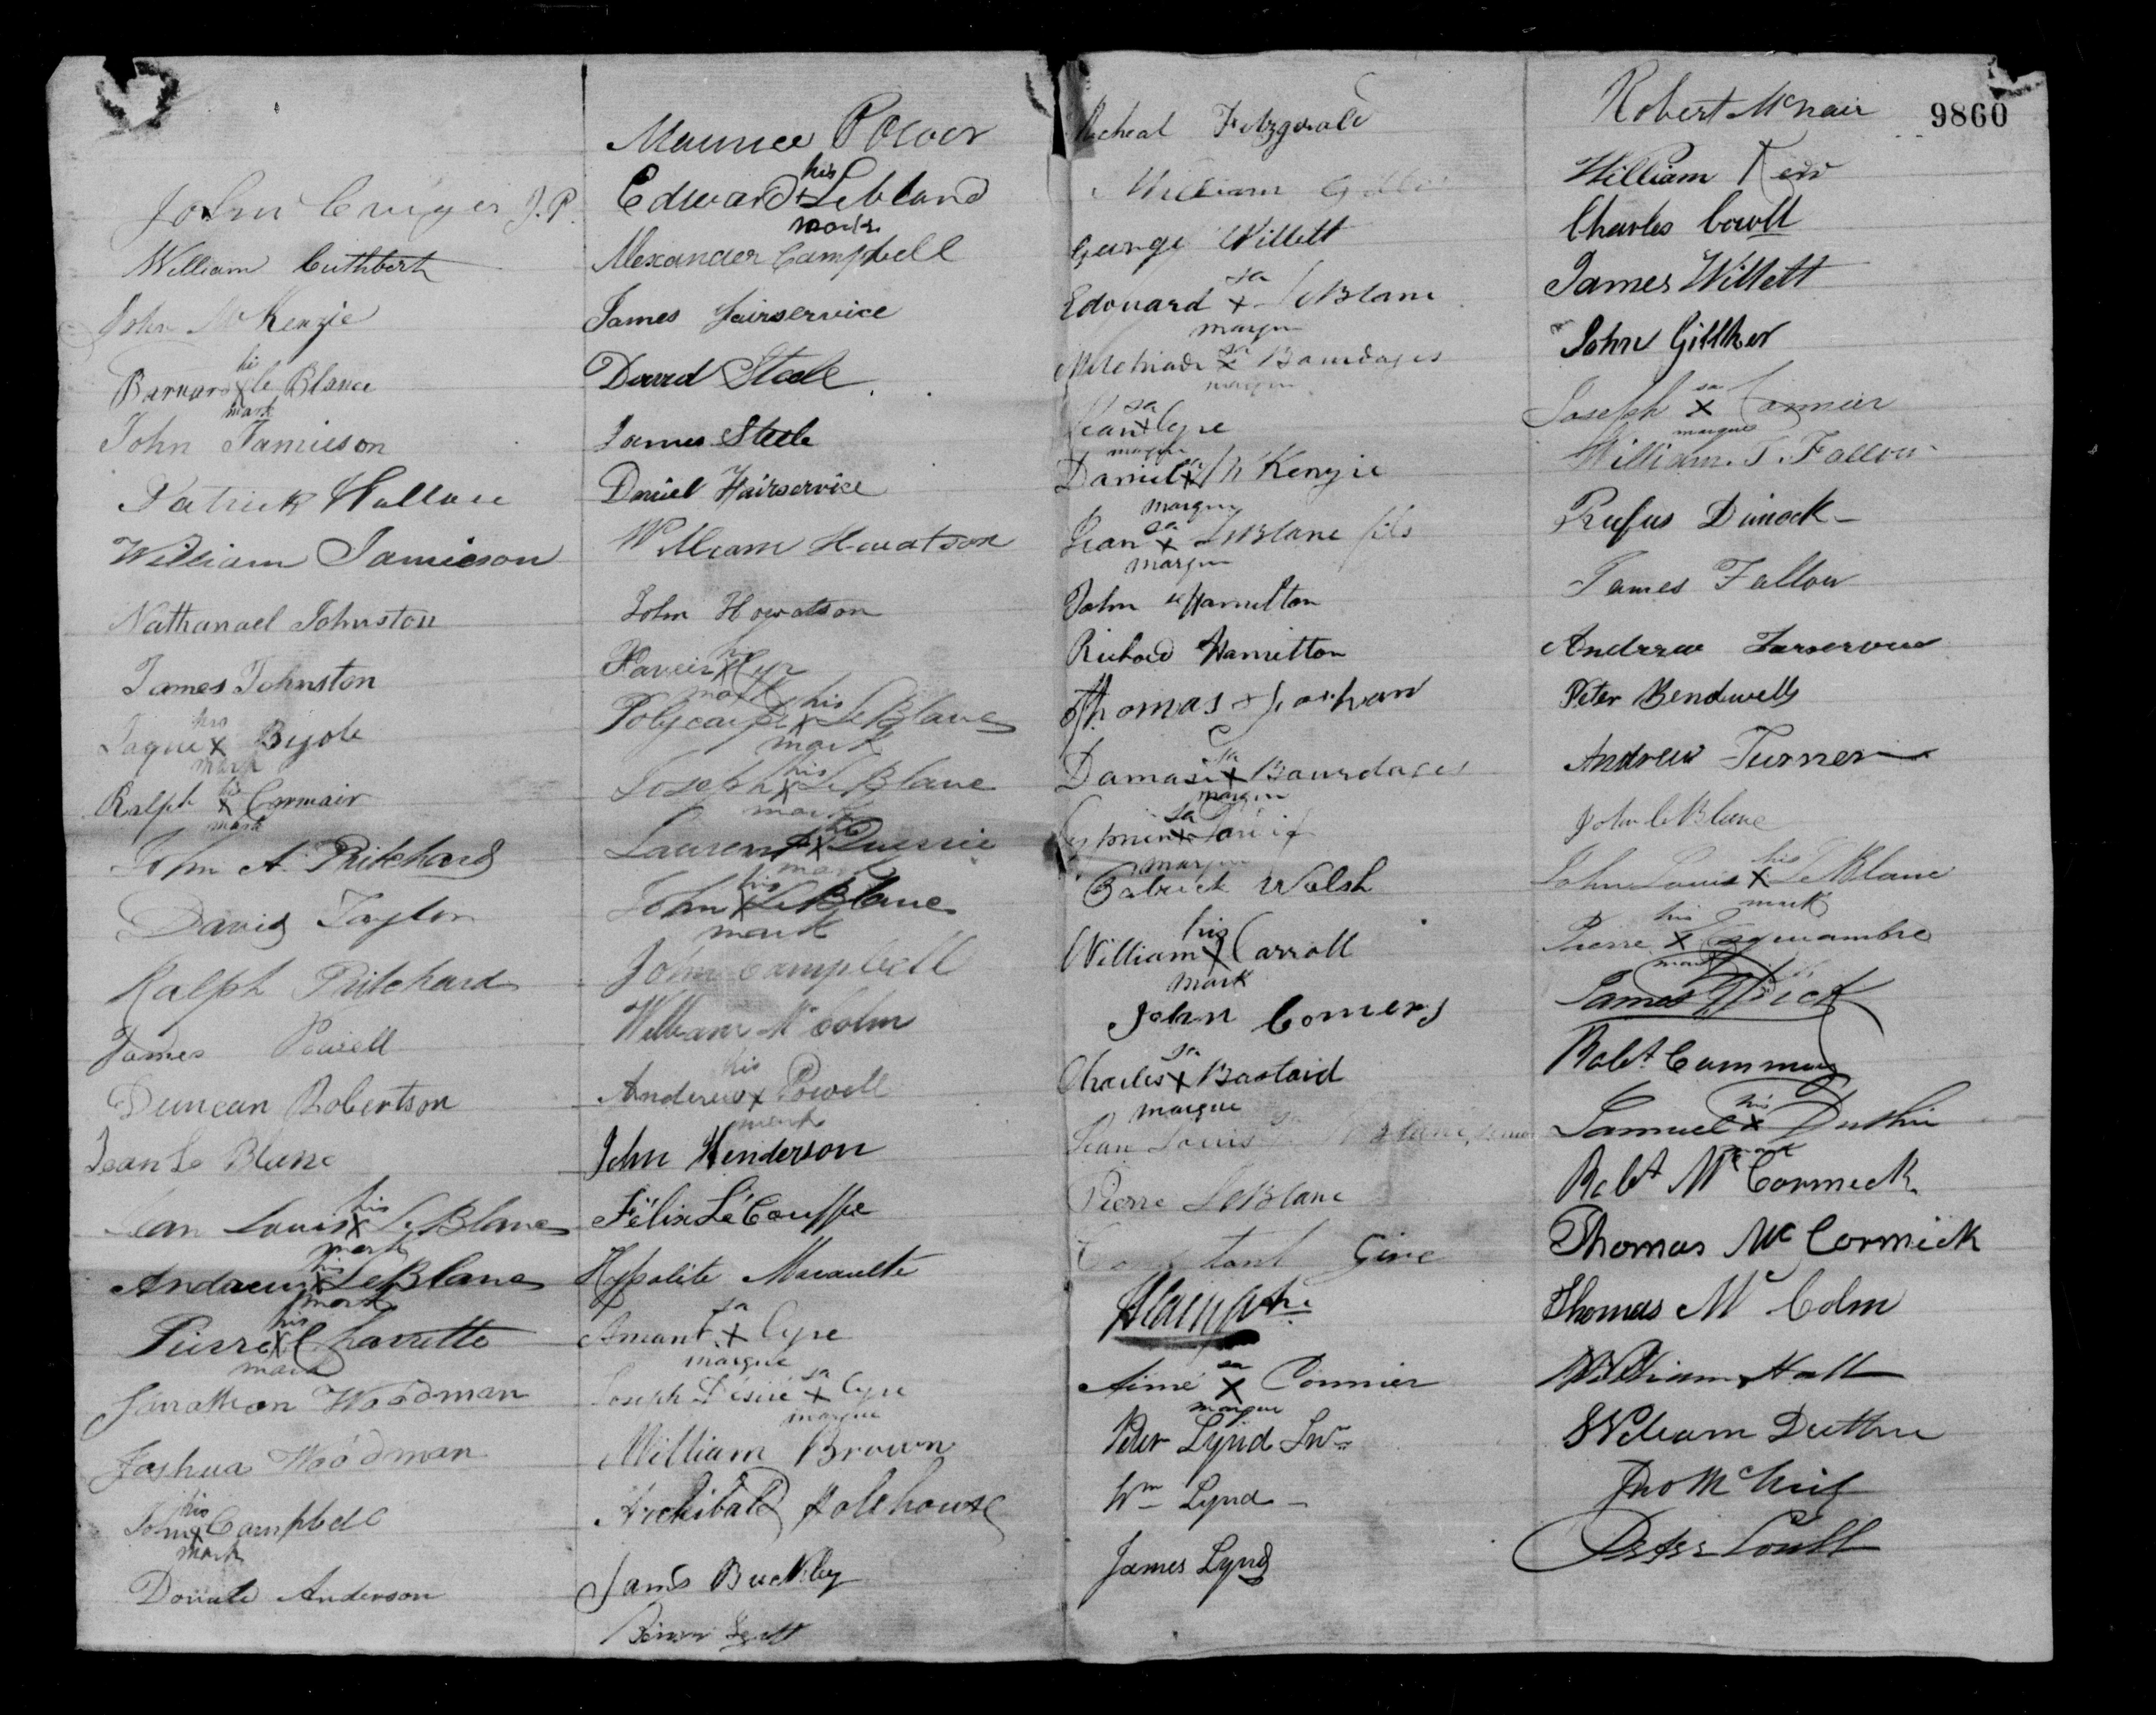 John Cuiger J.P.
William Cuthbert
John McKenzie
hi
Barnard X le Blance
mark
John Jamieson
Patrick Wallace
William Jamieson
Nathanael Johnston
James Johnston
his
Jaque X Bujole
mark
Ralph X Cormair
mark
John A. Pritchard
David Taylor
Ralph Pritchard
James Powell
Duncan Robertson
Jean Le Blanc
his
Jean Louis X LeBlanc
mark
his
Andrew X LeBlanc
mark
his
Pierre X Charrette
mark
Jonathan Woodman
Joshua Woodman
his
John X Campbell
mark
Donald Anderson
Maurice Power
his
Edward + Lebland
mark
Alexander Campbell
James Fairservice
David Steele
James Steele
Daniel Fairservice
William Howatson
John Howatson
his
Xaveir X Cyr
mark
his
Polycarpe X LeBlanc
mark
his
Joseph X LeBlanc
mark
Laurent X
mark
his
John X LeBlanc
mark
John Campbell
William McColm
his
Andrew X Powell
mark
John Henderson
Félix LeCouffe
Hypolite
sa
Amant X Cyre
marque
sa
Joseph Désiré X Cyre
marque
William Brown
Archibald
James Buckley
Micheal Fitzgerald
William
George Willett
sa
Edouard X LeBlanc
marque
sa
X Bourdages
marque
sa
Jean X Cyre
marque
sa
Daniel X McKenzie
marque
sa
Jean X LeBlanc fils
marque
John Hamilton
Richard Hamilton
Thomas
sa
Damase X Bourdages
marque
sa
X
marque
Patrick Walsh
his
William X Carroll
mark
John Comers
sa
Charles X Bastaid
marque
Jean Louis LeBlanc, senior
Pierre LeBlanc
Constant
sa
Aimé X Cormier
marque
Peter Lynd Snr
Wm Lynd
James Lynd
Robert McNair
9860
William Kerr
Charles Coull
James Willett
John Gillker
sa
Joseph X Cormier
marque
William. T. Fallow
Rufus Dimock
James Fallow
Andrew Farservice
Peter Bendwells
Andrew Turner
John leBlanc
his
John Louis X LeBlanc
mark
his
Pierre X
mark
James Dick
Robt. Cumming
his
Samuel X Duthie
mark
Robt McCormick
Thomas McCormick
Thomas McColm
William Hall
William Duthie
Jno McNeil
Peter Coull